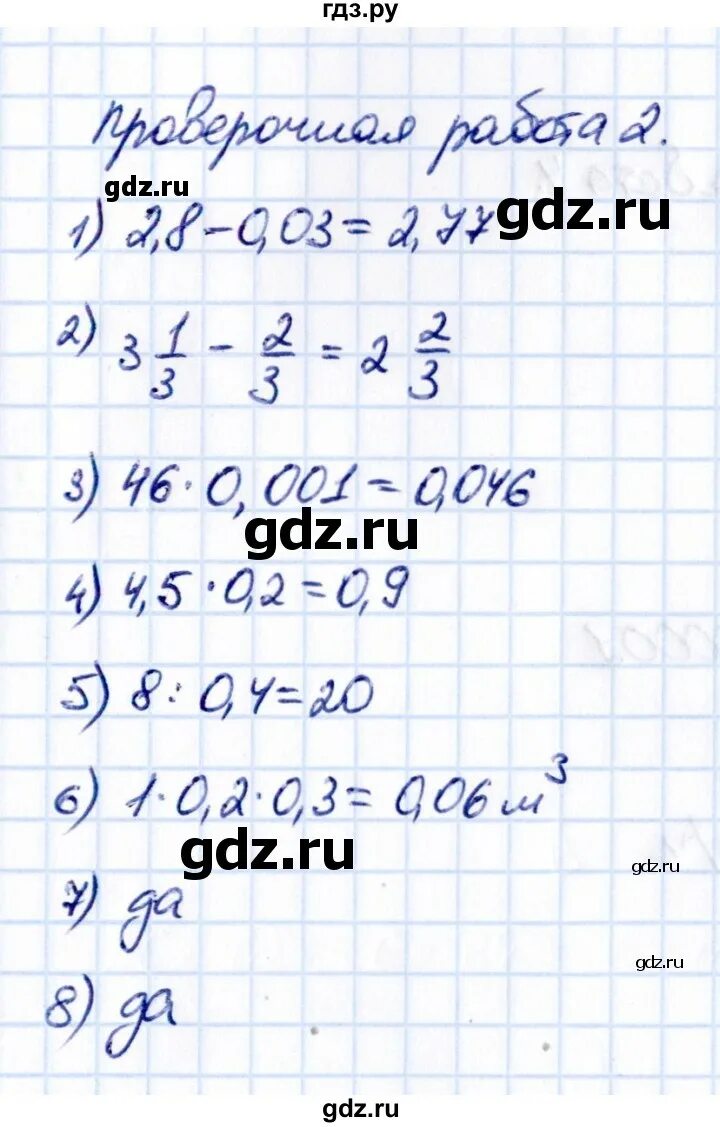 гдз.ру
Проверочная работа 2.
gdz.ru
1) 2,8 - 0,03 = 2,77
gdz.ru
2) 3 1/3 - 2/3 = 2 2/3
3) 46 · 0,001 = 0,046
gdz.ru
4) 4,5 · 0,2 = 0,9
5) 8 : 0,4 = 20
6) 1 · 0,2 · 0,3 = 0,06 м³
gdz.ru
gdz.ru
7) да
gdz.ru
8) да
gdz.ru